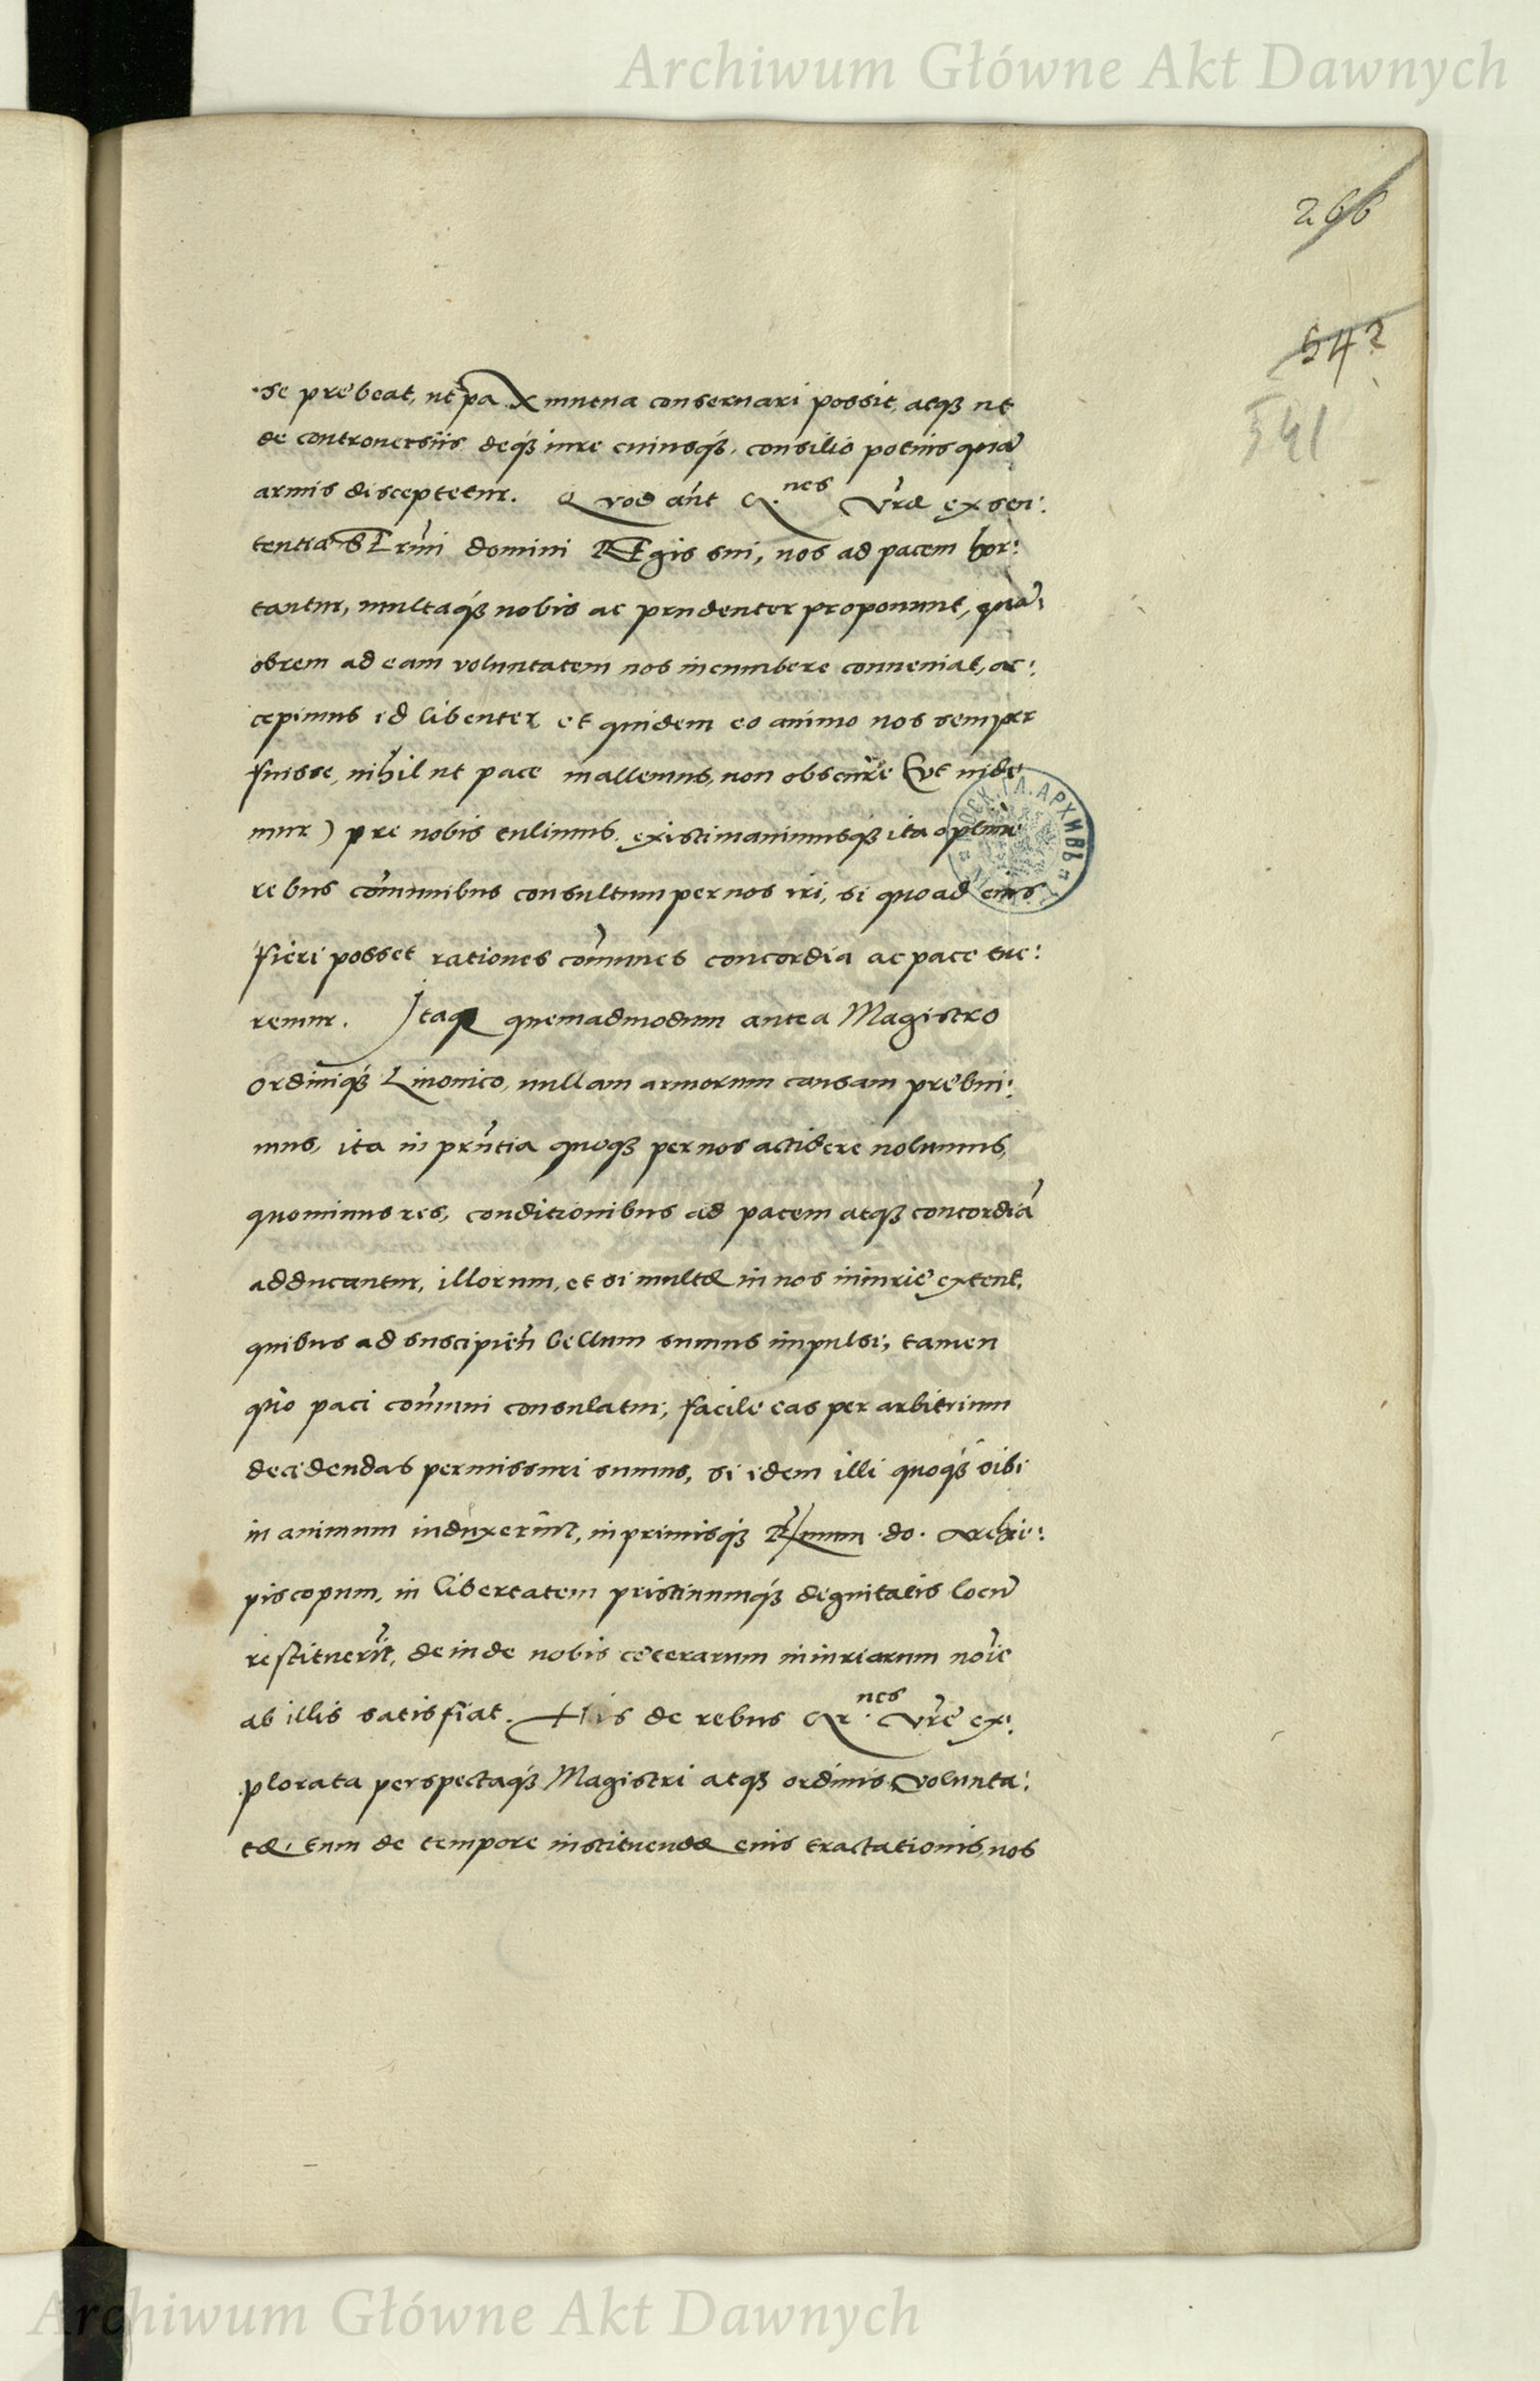 Archiwum Główne Akt Dawnych
266
542
541
se prębeat, ut pax mutua conseruari possit, atqȝ ut
de controuersiis deqȝ iure cuiusqȝ, consilio potius quã
armis disceptetur. Quod aũt M.nes Vræ ex sen:
tentia SErmi domini REgis sui, nos ad pacem hor:
tantur, multaqȝ nobis ac prudenter proponunt, quã:
obrem ad eam voluntatem nos incumbere conueniat, ac:
cepimus id libenter et quidem eo animo nos semper
fuisse, nihil ut pace mallemus, non obscurè (ut uide
mur) pre nobis tulimus, existimauimusqȝ ita optime
rebus cõmunibus consultum per nos iri, si quoad eius
fieri posset rationes cõmunes concordia ac pace tue:
remur. Itaqȝ quemadmodum antea Magistro
ordiniqȝ Liuonico, nullam armorum causam prębui:
mus, ita in prñtia quoqȝ per nos accidere nolumus,
quominus res, conditionibus ad pacem atqȝ concordiã
adducantur, illorum, et si multæ in nos iniurię extent,
quibus ad suscipieñ bellum sumus impulsi, tamen
quo paci cõmuni consulatur, facile eas per arbitrium
decidendas permissuri sumus, si idem illi quoqȝ sibi
in animum induxerint, in primisqȝ Rmum do. Archie:
piscopum, in libertatem pristinumqȝ dignitatis locũ
restituerĩt, deinde nobis cęterarum iniuriarum noĩe
ab illis satisfiat. His de rebus Mnes Vrę ex:
plorata perspectaqȝ Magistri atqȝ ordinis volunta:
te, tum de tempore instituendæ eius tractationis, nos
МОСК. ГЛ. АРХИВЪ
Archiwum Główne Akt Dawnych